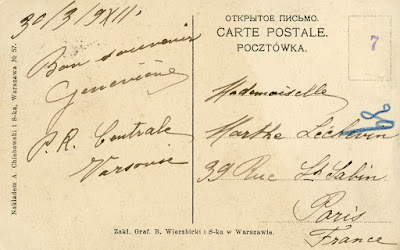 30/3/9XII.
Bon souvenir
Geneviève
P. R. Centrale
Varsovie
ОТКРЫТОЕ ПИСЬМО.
CARTE POSTALE.
POCZTÓWKA.
7
Mademoiselle
Marthe
39 Rue St Sabin
Paris
France
Nakładem A. Chlebowski i S-ka, Warszawa № 57.
Zakł. Graf. B. Wierzbicki i S-ka w Warszawie.